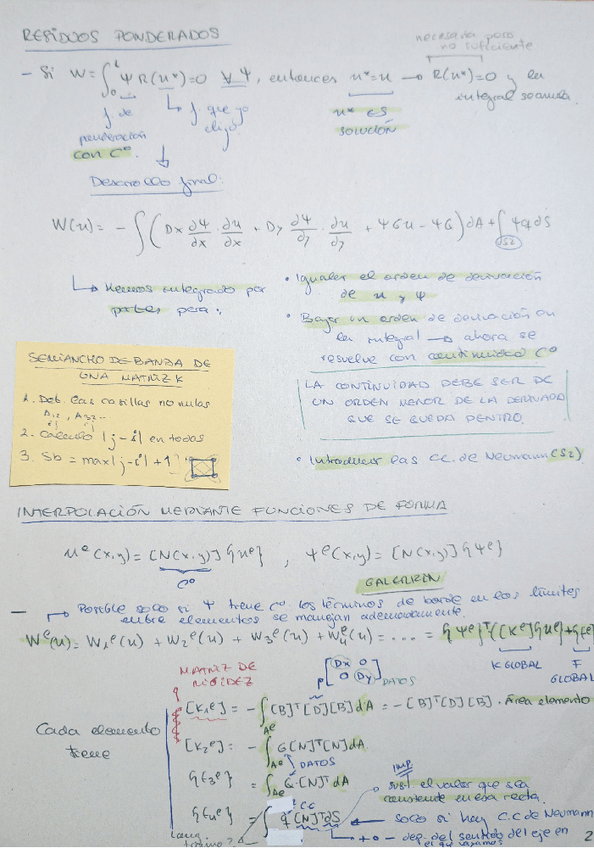 RESIDUOS PONDERADOS
necesaria pero
no suficiente
- Si W = ∫₀ᴸ Ψ R(u*) = 0 ∀ Ψ, entonces u* = u → R(u*) = 0 y la
integral se anula.
f de
ponderación
con C⁰.
f que yo
elijo.
u* es
SOLUCIÓN
Desarrollo final:
W(u) = - ∫ ( Dx ∂Ψ/∂x · ∂u/∂x + Dy ∂Ψ/∂y · ∂u/∂y + ΨGu - ΨG ) dA + ∫(S2) Ψq dS
↳ Hemos integrado por
partes para:
• Igualar el orden de derivación
de u y Ψ
• Bajar un orden de derivación en
la integral → ahora se
resuelve con continuidad C⁰
LA CONTINUIDAD DEBE SER DE
UN ORDEN MENOR DE LA DERIVADA
QUE SE QUEDA DENTRO.
• Introducir las CC. de Neumann (S2)
SEMIANCHO DE BANDA DE
UNA MATRIZ K
1. Det. las casillas no nulas
A12, A32...
ij ij
2. Cálculo |j-i| en todas
3. Sb = max|j-i| + 1
INTERPOLACIÓN MEDIANTE FUNCIONES DE FORMA
uᵉ(x,y) = [N(x,y)]{uᵉ} , Ψᵉ(x,y) = [N(x,y)]{Ψᵉ}
C⁰
GALERKIN
→ Posible solo si Ψ tiene C⁰ los términos de borde en los límites
entre elementos se manejan adecuadamente.
Wᵉ(u) = W₁ᵉ(u) + W₂ᵉ(u) + W₃ᵉ(u) + W₄ᵉ(u) = .... = {Ψᵉ}ᵀ([Kᵉ]{uᵉ}+{fᵉ}
K GLOBAL
F
GLOBAL
MATRIZ DE
RIGIDEZ
[Dx 0]
[0 Dy] DATOS
Cada elemento
tiene
[K₁ᵉ] = - ∫Aᵉ [B]ᵀ[D][B]dA = -[B]ᵀ[D][B] · Área elemento
[K₂ᵉ] = - ∫Aᵉ G[N]ᵀ[N]dA
DATOS
{f₃ᵉ} = ∫Aᵉ G·[N]ᵀdA
IMP
sust. el valor que sea
constante en esa recta.
CC
{f₄ᵉ} = ∫ q[N]ᵀdS ← solo si hay C.C de Neumann
+ o - dep. del sentido del eje en
el que vayamos
2